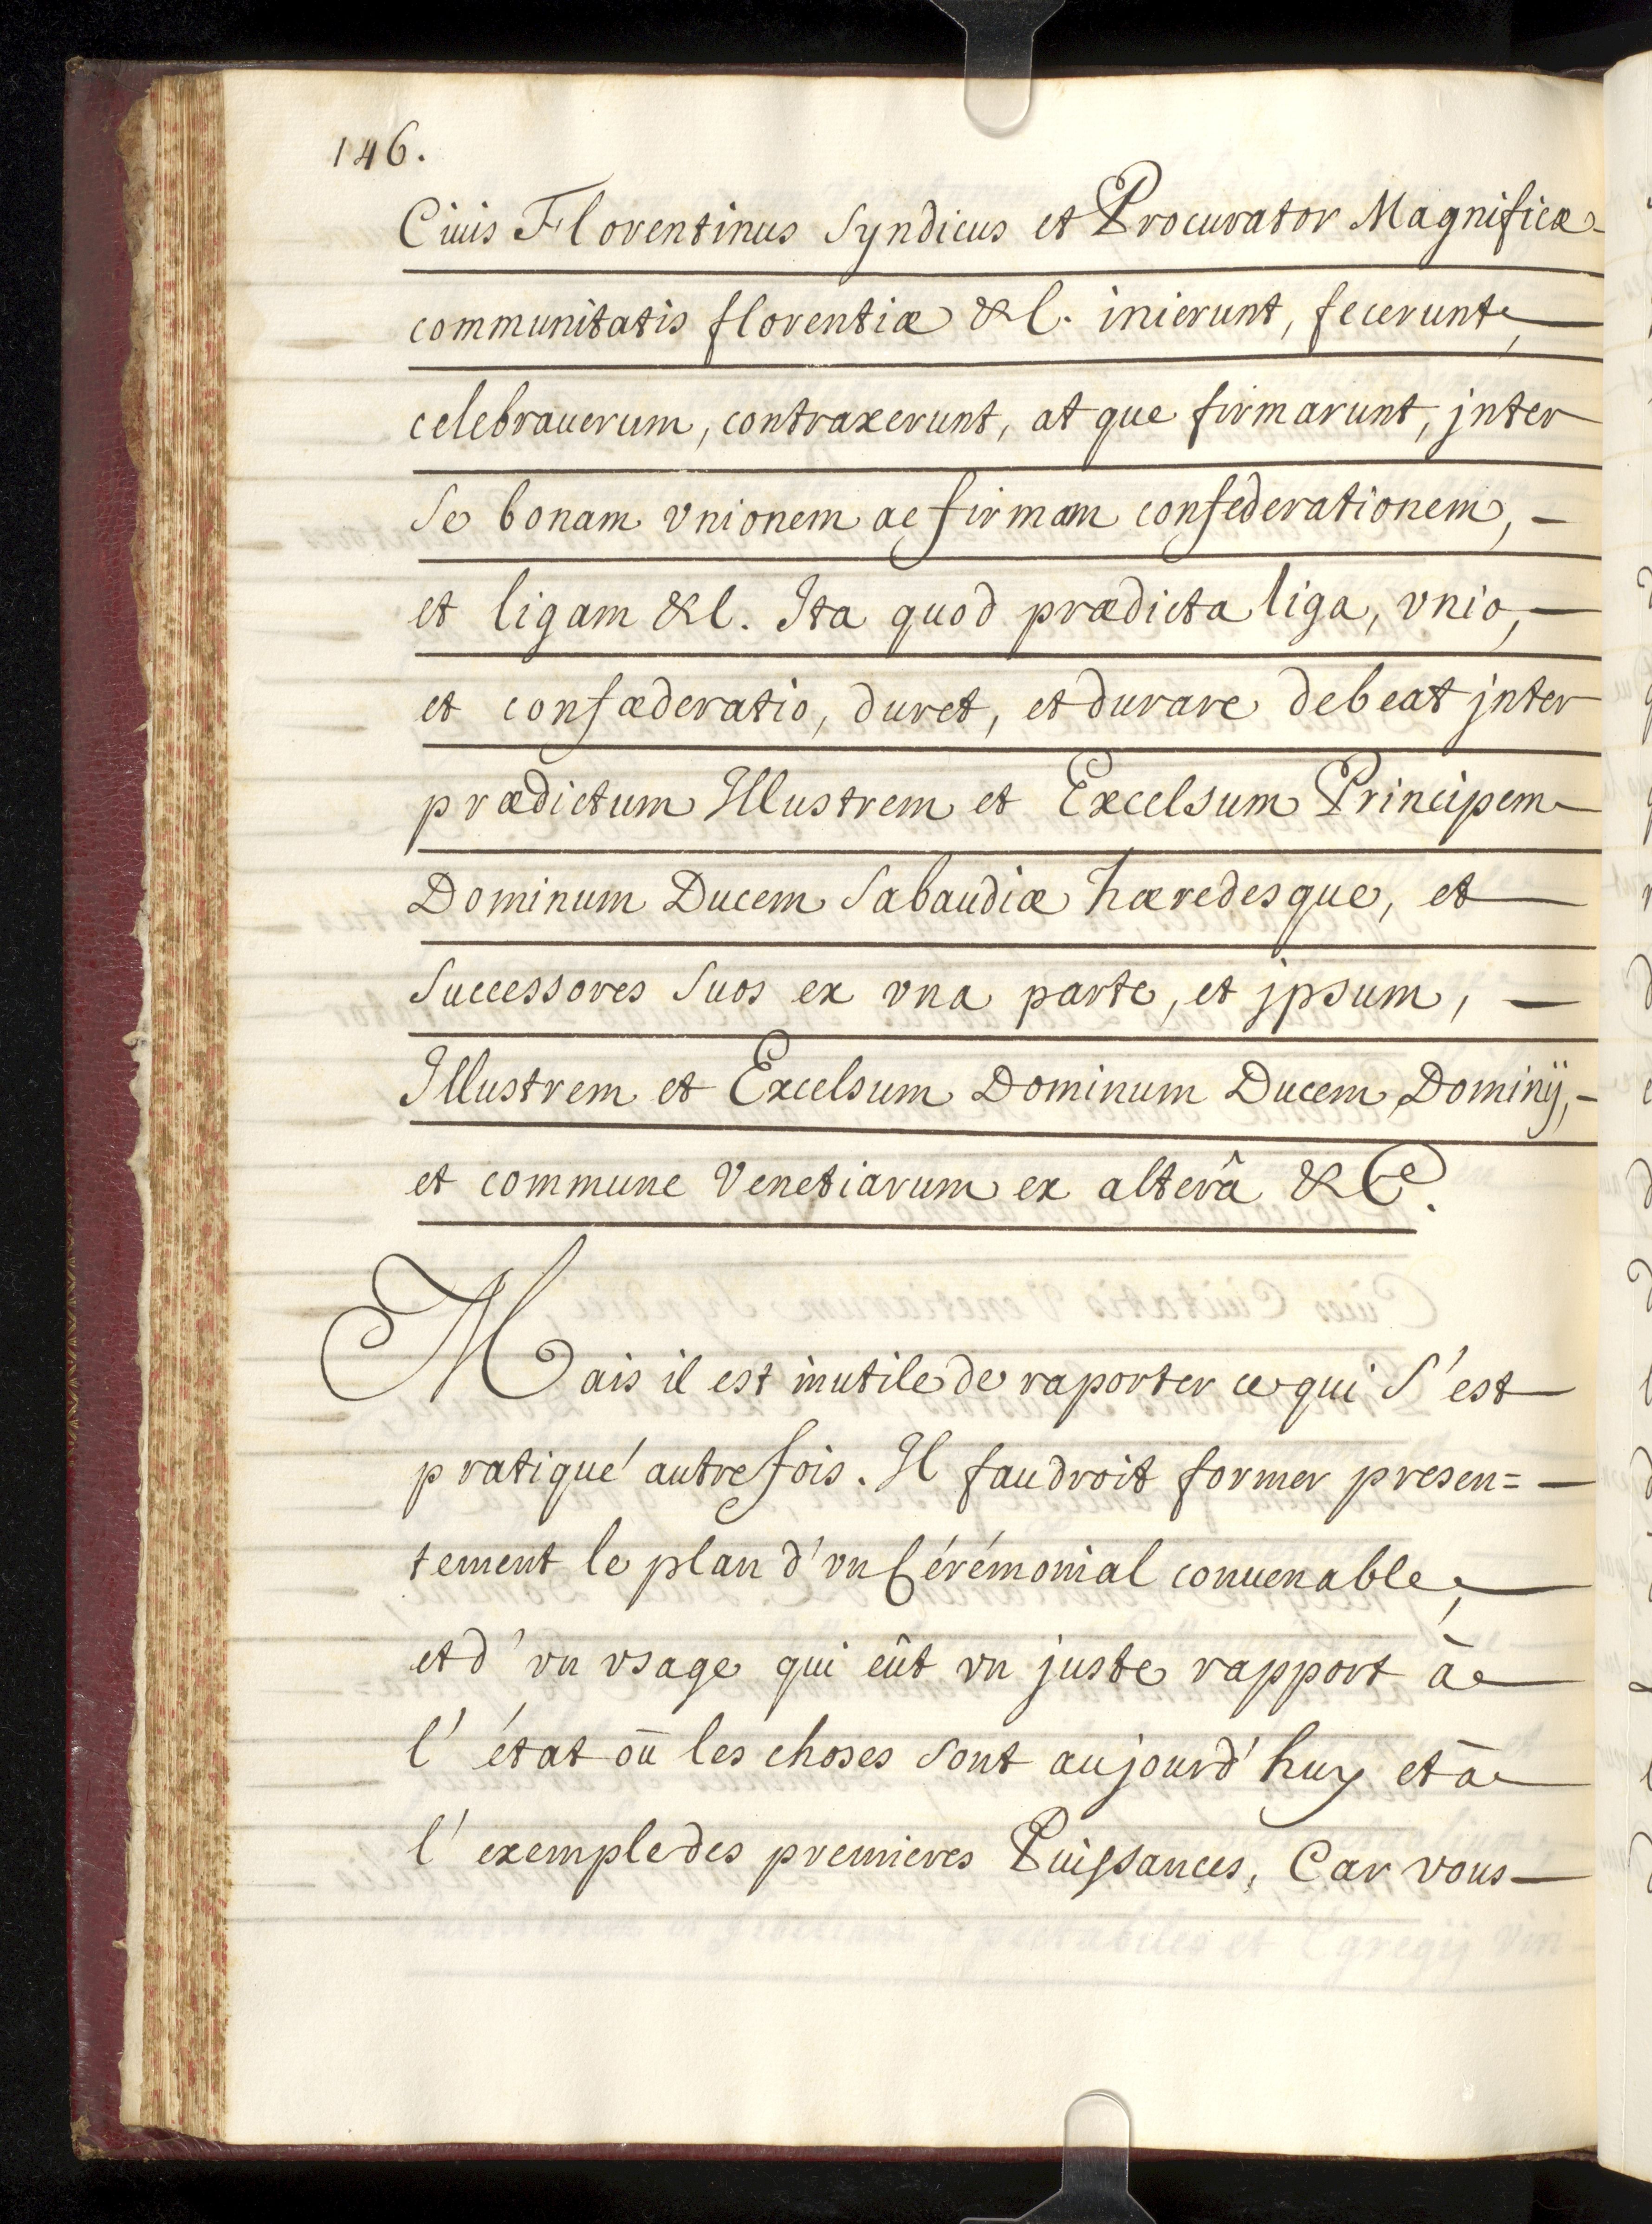 146.
Ciuis Florentinus Syndicus et Procurator Magnificæ
communitatis florentiæ &c. inierunt, fecerunt,
celebrauerum, contraxerunt, at que firmarunt, jnter
Se bonam vnionem ac firmam confederationem, -
et ligam &c. Ita quod prædicta liga, vnio,
et confæderatio, duret, et durare debeat jnter
prædictum Illustrem et Excelsum Principem
Dominum Ducem Sabaudiæ hæredesque, et
Successores Suos ex vna parte, et jpsum, -
Illustrem et Excelsum Dominum Ducem Dominÿ, -
et commune Venetiarum ex alterâ &C.
Mais il est inutile de raporter ce qui S'est
pratiqué autrefois. Il faudroit former presen=
tement le plan d'vn Cérémonial conuenable,
et d'vn vsage qui eût vn juste rapport à
l'état où les choses Sont aujourd'huy et à
l'exemple des premieres Puissances, Car vous